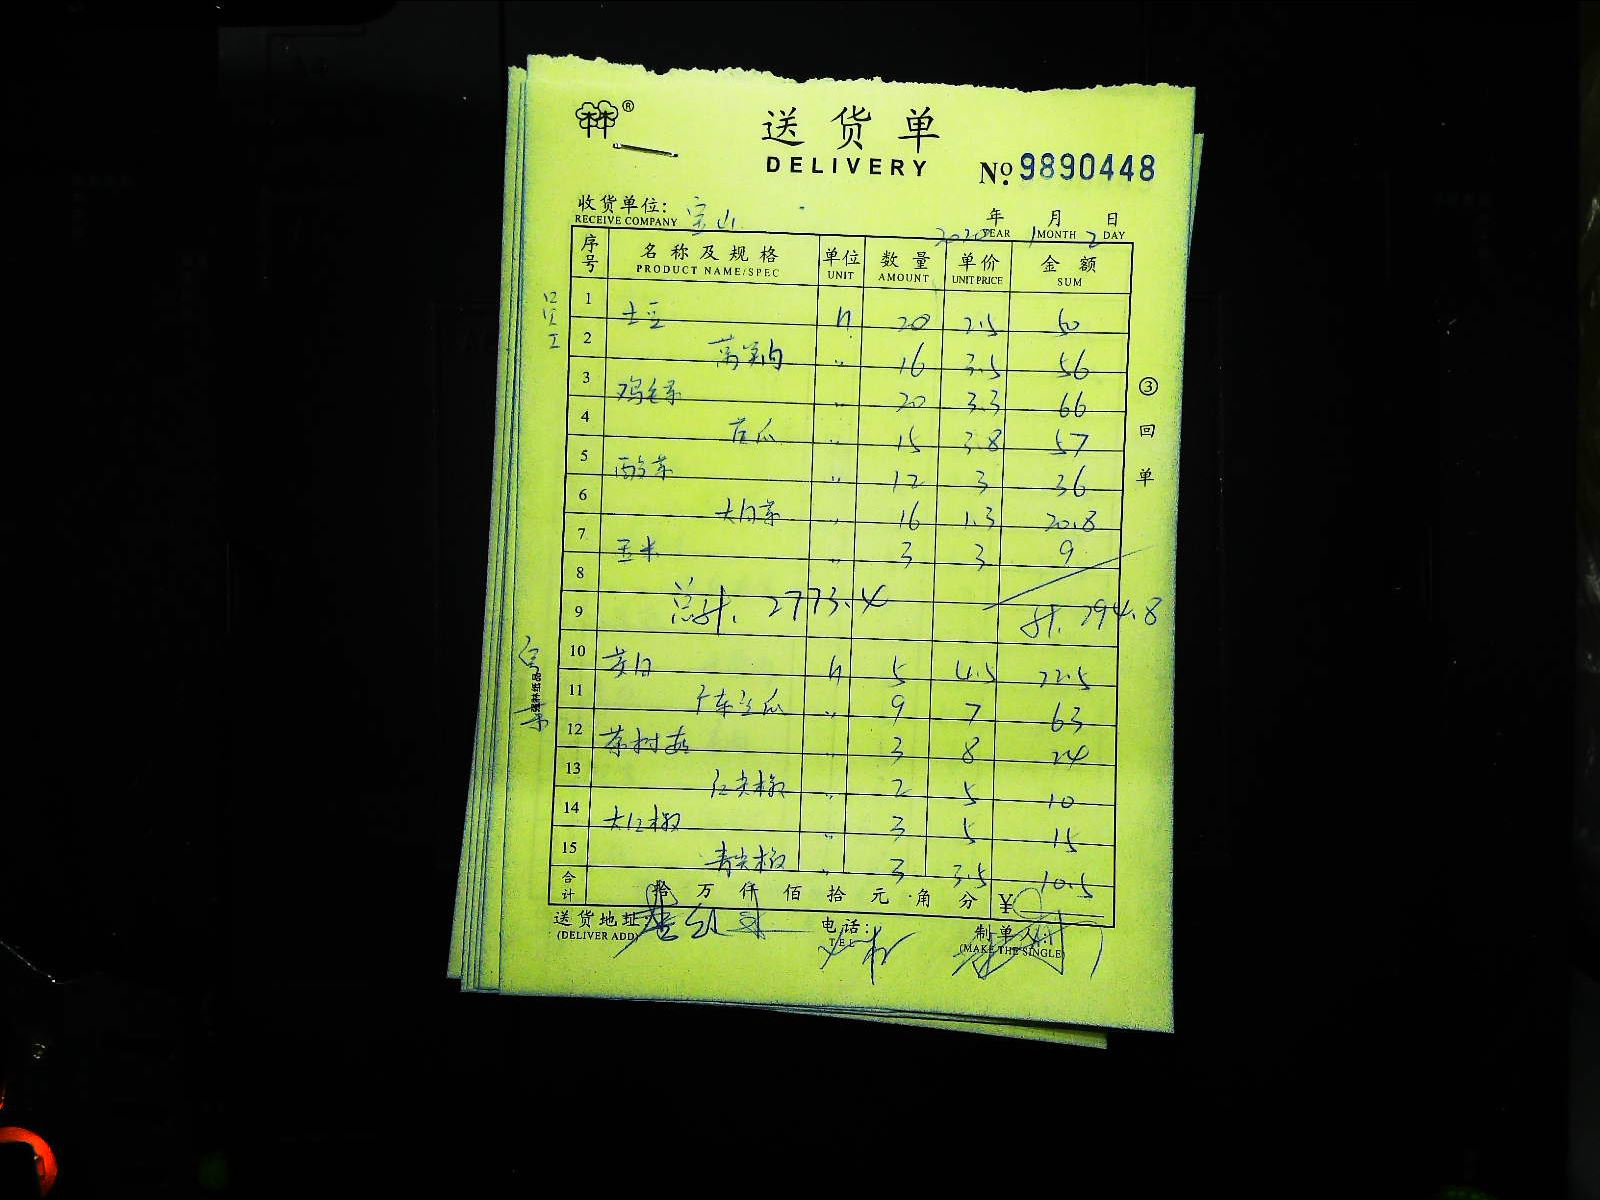 ®
送货单
DELIVERY
No. 9890448
收货单位: 宝山
RECEIVE COMPANY
2020年 1月 2日
YEAR MONTH DAY
序号 名称及规格 单位 数量 单价 金额
PRODUCT NAME/SPEC UNIT AMOUNT UNIT PRICE SUM
1 土豆 斤 20 2.5 50
2 莴笋肉 〃 16 3.5 56
3 鸡毛菜 〃 20 3.3 66
4 苦瓜 〃 15 3.8 57
5 酸菜 〃 12 3 36
6 大白菜 〃 16 1.3 20.8
7 玉米 〃 3 3 9
8
9 总计. 2773.4 计. 294.8
10 茭白 斤 5 4.5 22.5
11 〃 9 7 63
12 茶树菇 〃 3 8 24
13 红尖椒 〃 2 5 10
14 大红椒 〃 3 5 15
15 青尖椒 〃 3 3.5 10.5
合计 拾 万 仟 佰 拾 元 角 分 ¥
送货地址: 电话: 制单人:
(DELIVER ADD) TEL (MAKE THE SINGLE)
员工
③回单